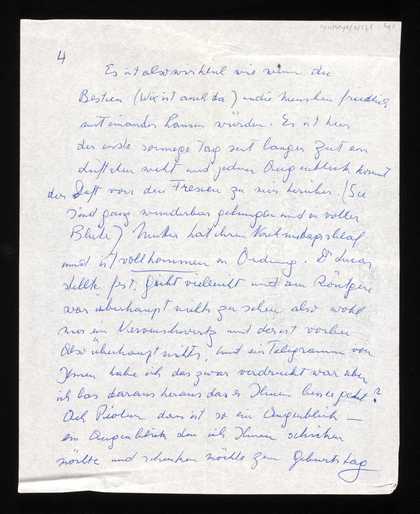 4
Es ist also wirklich wie wenn die
Bestien (Wix ist auch da) und die Menschen friedlich
mit einander hausen würden. Es ist hier
der erste sonnige Tag seit langer Zeit ein
duftchen weht und jeden Augenblick kommt
der Duft von den Fresien zu mir herüber. (Sie
sind ganz wunderbar gelungen und in voller
Blüte) hat ihren Nachmittagsschlaf
und ist vollkommen in Ordnung. Dr
stellte fest: Gicht vielleicht und am Röntgen
war überhaupt nichts zu sehen also wohl
nur ein Nervenschmerz und der ist vorbei
Also überhaupt nichts, und ein Telegramm von
Ihnen habe ich das zwar verdruckt war aber
ich las daraus heraus das es Ihnen besser geht?
Ach Piotur dann ist so ein Augenblick –
ein Augenblick den ich Ihnen schicken
möchte und schenken möchte zum Geburtstag